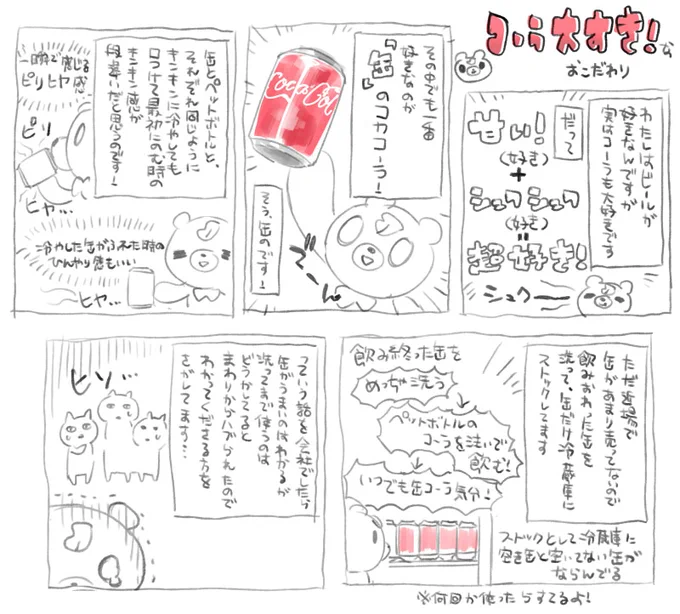 コーラ大すき!な
おこだわり
わたしはビールが
好きなんですが
実はコーラも大好きです
だって
甘い!
(好き)
+
シュワシュワ
(好き)
=
超好き!
シュワー
その中でも一番
好きなのが
『缶』のコカコーラ!
Coca-Cola
そう、缶のです!
でーん
缶とペットボトルと、
それぞれ同じように
キンキンに冷やしても
口つけて最初にのむ時の
キンキン感が
段違いだと思うのです!
一瞬で感じる
ピリヒヤ感
ピリ
ヒヤ…
冷やした缶がふれた時の
ひんやり感もいい
ヒヤ…
ただ近場で
缶があまり売ってないので
飲みおわった缶を
洗って、缶だけ冷蔵庫に
ストックしてます
飲み終った缶を
めっちゃ洗う
ペットボトルの
コーラを注いで
飲む!
いつでも缶コーラ気分!
ストックとして冷蔵庫に
空き缶と空いてない缶が
ならんでる
※何回か使ったらすてるよ!
っていう話を会社でしたら
缶がうまいのはわかるが
洗ってまで使うのは
どうかしてると
まわりからハブられたので
わかってくださる方を
さがしてます…
ヒソ…